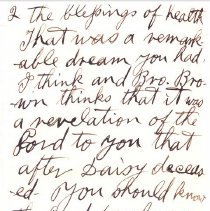 2 The blessings of health
That was a remark-
able dream you had.
I think and Bro. Bro-
wn thinks that it was
a revelation of the
Lord to you that
after Daisy deceas-
ed. You should know